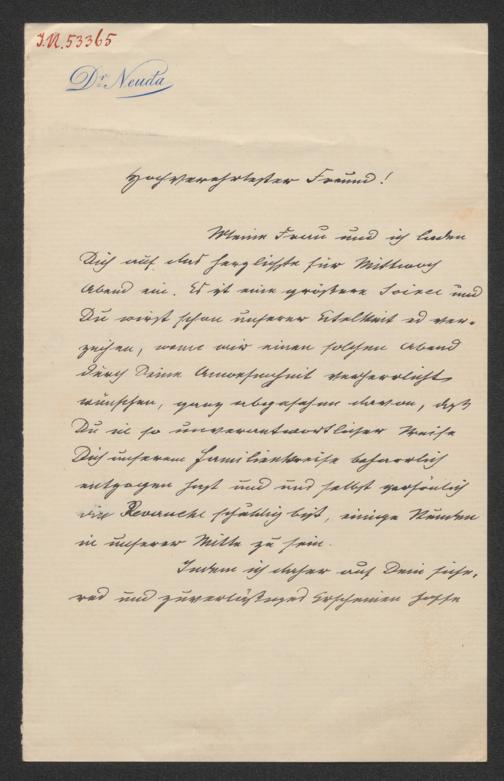 J.N. 53365
Dr. Neuda
Hochverehrtester Freund!
Meine Frau und ich laden
Dich auf das herzlichste für Mittwoch
Abend ein. Es ist eine größere Soiree und
Du wirst schon unserer Eitelkeit es ver-
zeihen, wenn wir einen solchen Abend
durch Deine Anwesenheit verherrlicht
wünschen, ganz abgesehen davon, daß
Du in so unverantwortlicher Weise
Dich unserem Familienkreise beharrlich
entzogen hast und uns selbst persönlich
die Revanche schuldig bist, einige Stunden
in unserer Mitte zu sein.
Indem ich daher auf Dein siche-
res und zuverlässiges Erscheinen hoffe